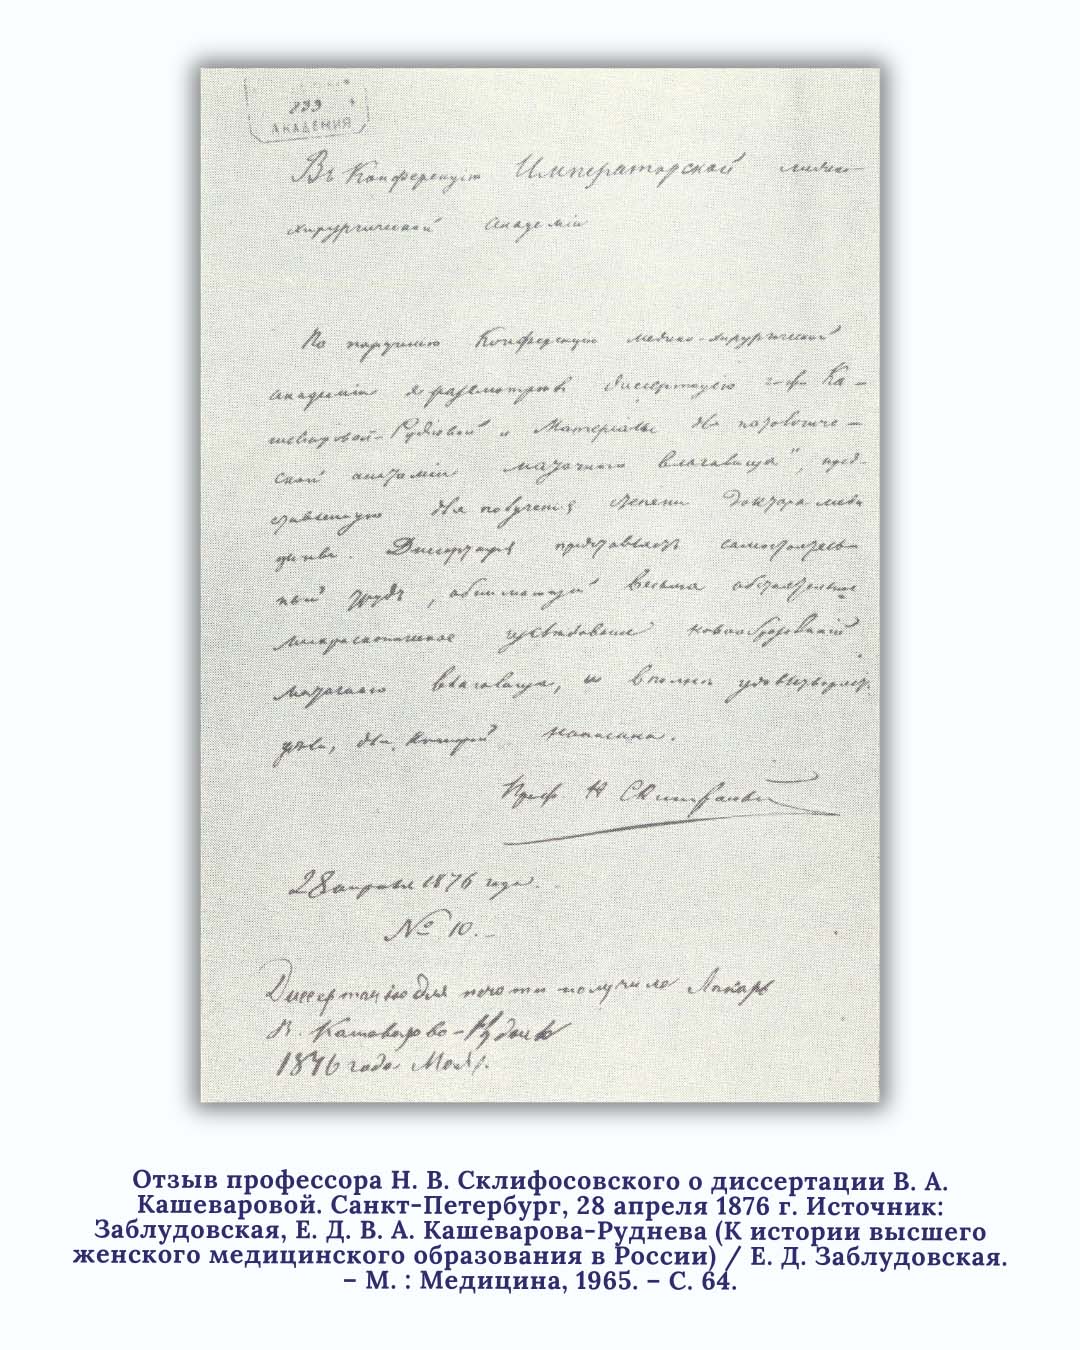 199
АКАДЕМИЯ
Въ Конференцію Императорской медико-
хирургической Академіи
По порученію Конференціи медико-хирургической
академіи я разсмотрѣлъ диссертацію г-жи Ка-
шеваровой-Рудневой „Матеріалы для патологиче-
ской анатоміи маточнаго влагалища", пред-
ставленную для полученія степени доктора меди
цины. Диссертація представляетъ самостоятель-
ный трудъ, обнимающій весьма обстоятельное
микроскопическое изслѣдованіе новообразованій
маточнаго влагалища, и вполнѣ удовлетворяетъ
цѣли, для которой написана.
Проф. Н Склифосовскій
28 апрѣля 1876 года.
№ 10.
Диссертацію для печати получила Лѣкарь
В. Кашеварова-Руднева
1876 года Мая
Отзыв профессора Н. В. Склифосовского о диссертации В. А.
Кашеваровой. Санкт-Петербург, 28 апреля 1876 г. Источник:
Заблудовская, Е. Д. В. А. Кашеварова-Руднева (К истории высшего
женского медицинского образования в России) / Е. Д. Заблудовская.
– М. : Медицина, 1965. – С. 64.